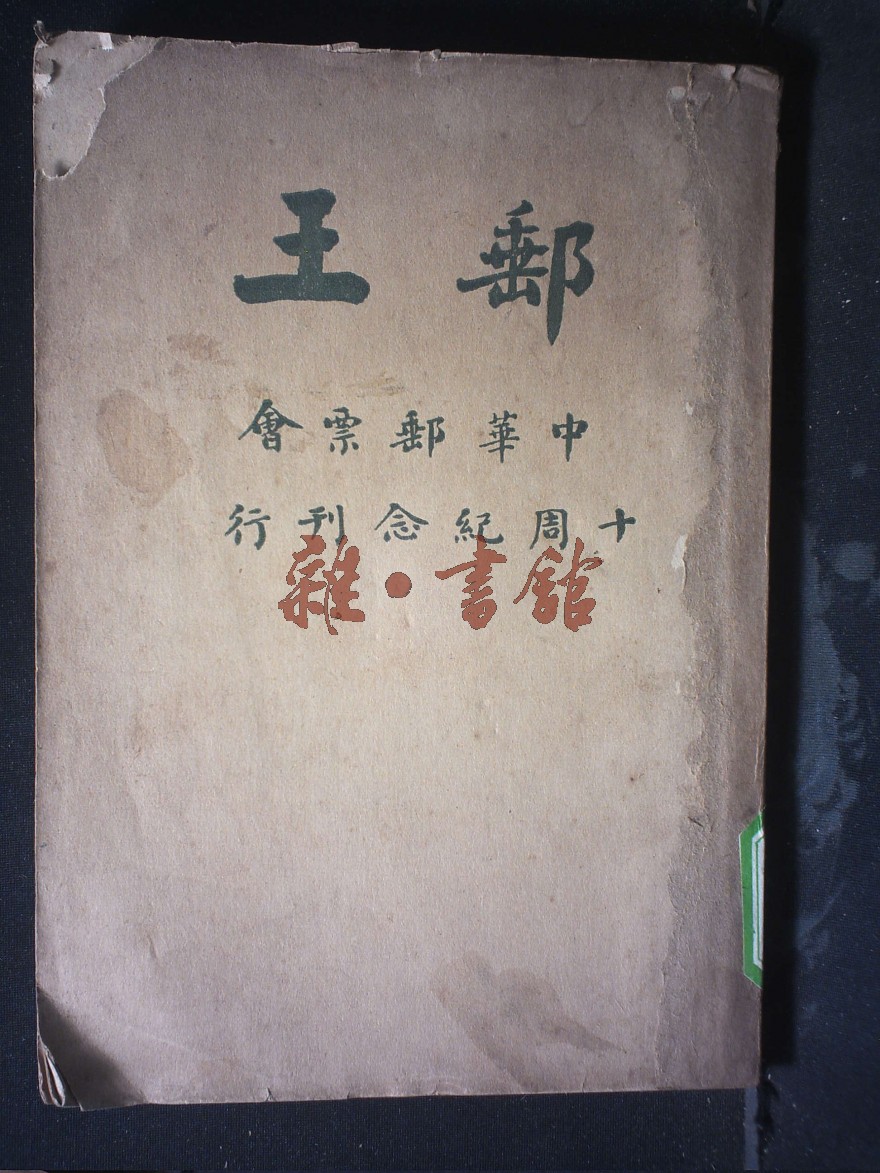 郵王
中華郵票會
十周紀念刊行
雜·書館